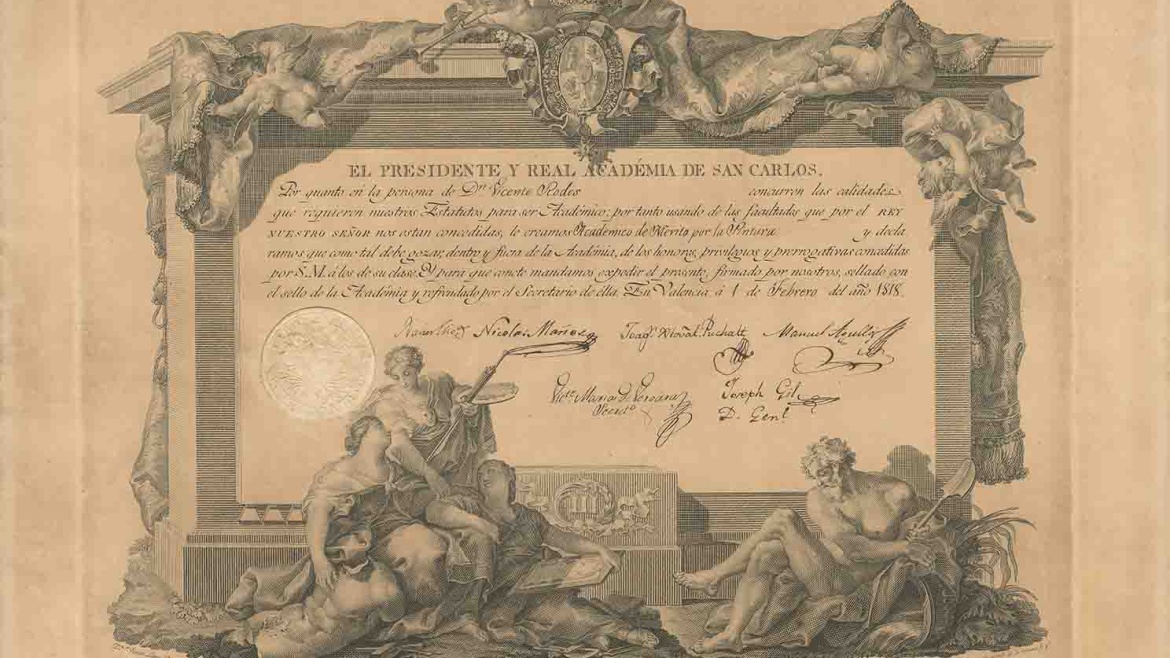 EL PRESIDENTE Y REAL ACADÉMIA DE SAN CARLOS.
Por quanto en la persona de Dn. Vicente Rodes concurren las calidades
que requieren nuestros Estatutos para ser Académico: por tanto usando de las facultades que por el REY
NUESTRO SEÑOR nos estan concedidas, le creamos Academico de Merito por la Pintura y decla
ramos que como tal debe gozar, dentro y fuera de la Académia, de los honores, privilegios y prerrogativas concedidas
por S. M. á los de su clase. Y para que conste mandamos expedir el presente, firmado por nosotros, sellado con
el sello de la Académia y refrendado por el Secretario de ella. En Valencia á 1 de Febrero del año 1818.
Nicolas Mañez Puchalt Manuel
Victe. Maria D. Vergara Joseph Gil
Secrio. D. Genl.